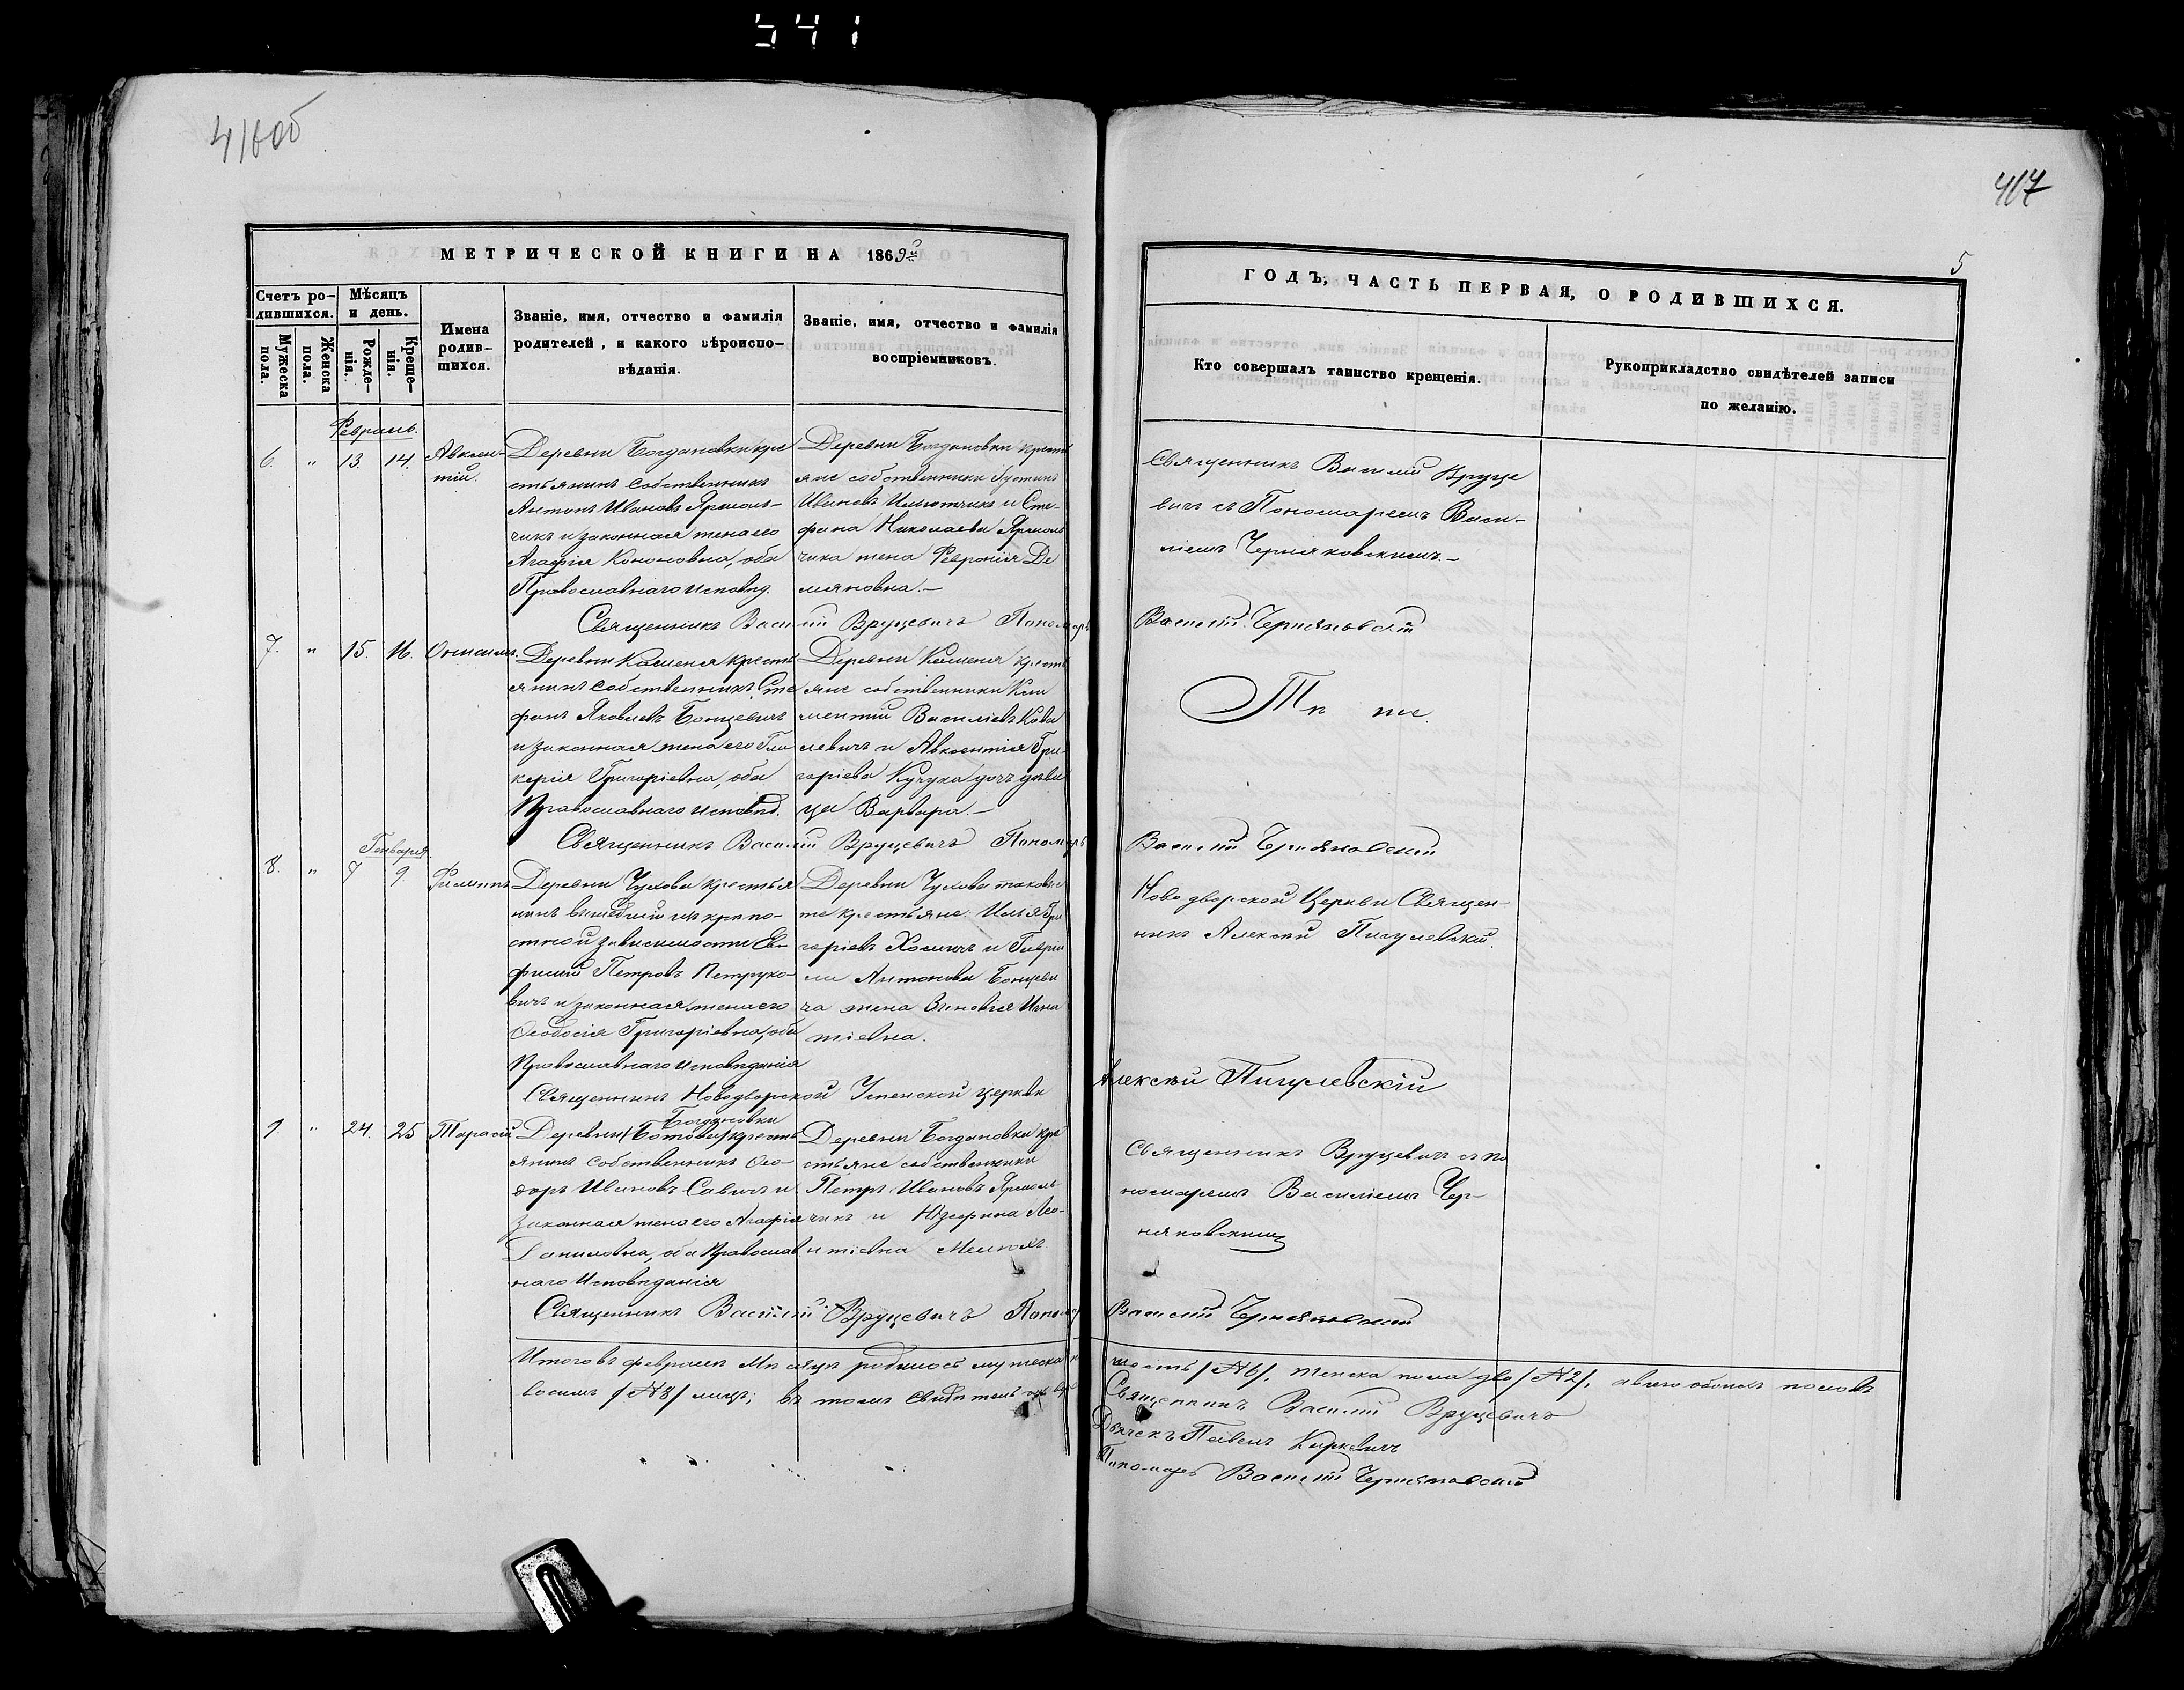 541
416об
417
5
МЕТРИЧЕСКОЙ КНИГИ НА 1869й
Счетъ ро-
дившихся.
Мужеска
пола.
Женска
пола.
Мѣсяцъ
и день.
Рожде-
нія.
Креще-
нія.
Имена
родив-
шихся.
Званіе, имя, отчество и фамилія
родителей, и какого вѣроиспо-
вѣданія.
Званіе, имя, отчество и фамилія
воспріемниковъ.
ГОДЪ, ЧАСТЬ ПЕРВАЯ, О РОДИВШИХСЯ.
Кто совершалъ таинство крещенія.
Рукоприкладство свидѣтелей записи
по желанію.
Февраль.
6. " 13. 14.
Авксен-
тій.
Деревни Богдановки кре
стьянинъ собственникъ
Антонъ Ивановъ Ярмоль-
чикъ и законная жена его
Агафія Кононовна, оба
Православнаго исповѣд.
Деревни Богдановки крестъ
яне собственники Іустинъ
Ивановъ и Сте-
фана Николаева Ярмоль
чика жена Февронія Де
мяновна.-
Священникъ Василій Вруце
вичъ съ Пономаремъ Васи-
ліемъ Черняковскимъ.-
Священникъ Василій Вруцевичъ Пономарь Василій Черняковскій
7. " 15. 16. Онисимъ.
Деревни Каменя кресть
янинъ собственникъ Сте
фанъ Яковлевъ Бонцевичъ
и законная жена его Гли
керія Григоріевна, оба
Православнаго исповѣд.
Деревни Каменя кресть
яне собственники Кли
ментій Василіевъ Кова
левичъ и Авксентія Гри-
горіева Кучука дочь дѣви
ца Варвара.-
Тѣ же.
Священникъ Василій Вруцевичъ Пономарь Василій Черняковскій
Генваря.
8. " 7 9. Филиппъ
Деревни Чухова крестья
нинъ вышедшій изъ крѣпо-
стной зависимости Ев-
фимій Петровъ Петруко-
вичъ и законная жена его
Ѳеодосія Григоріевна, оба
Православнаго исповѣданія
Деревни Чухова таковые
же крестьяне: Илья Гри
горіевъ Хомичъ и Гаврі
ла Антонова Бонцеви
ча жена Зиновія Игна
тіевна.
Новодворской Церкви Священ-
никъ Алексій Пигулевскій.
Священникъ Новодворской Успенской церкви Алексій Пигулевскій
9. " 24. 25 Тарасій
Богдановки
Деревни /Ботова/ кресть
янинъ собственникъ Ѳео-
доръ Ивановъ Савичъ и
законная жена его Агафія
Даниловна, оба Православ
наго Исповѣданія
Деревни Богдановки кре
стьяне собственники
Петръ Ивановъ Ярмоль-
чикъ и Юзефина Лео-
нтіевна
Священникъ Вруцевичъ съ по
номаремъ Василіемъ Чер-
няковскимъ
Священникъ Василій Вруцевичъ Пономарь Василій Черняковскій
Итого въ февралѣ Мѣсяцѣ родилось мужеска п шесть /№6/, женска пола два /№2/, а всего обоихъ половъ
восемь /№8/ лицъ; въ томъ свидѣтельствуемъ
Священникъ Василій Вруцевичъ
Дьячекъ Павелъ Киркевичъ
Пономарь Василій Черняковскій